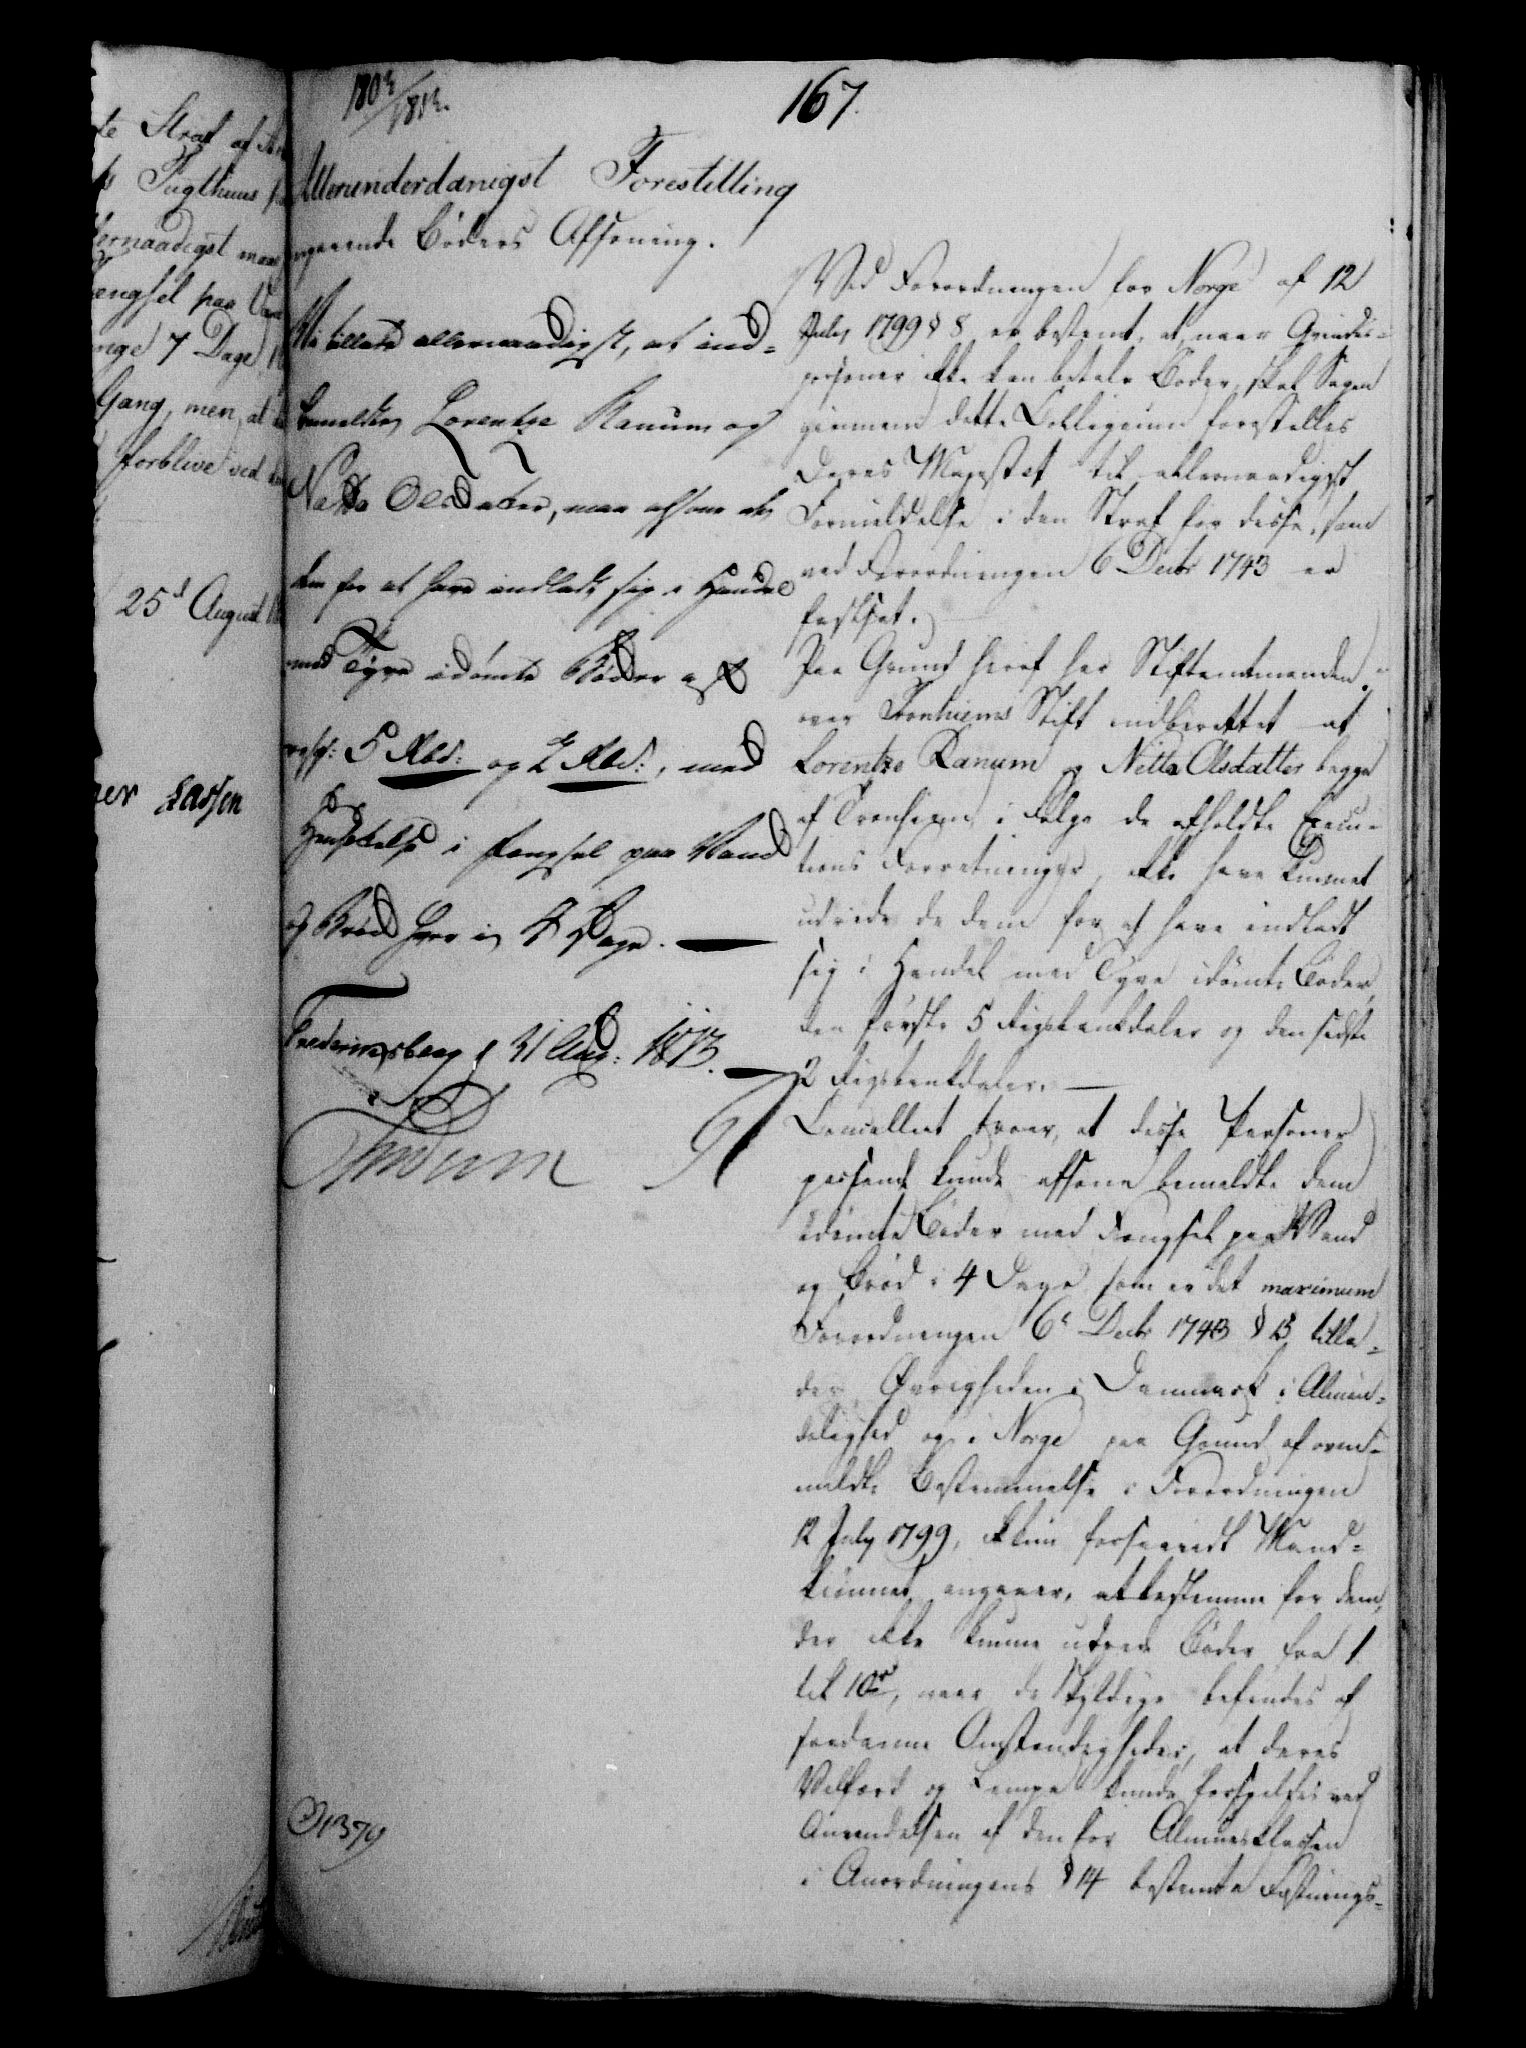 te Straf af
Tugthuus
allernaadigst maa
engsel paa Van
nge 7 Dage,
Gang, men, at
forblive ved
25d August
Lassen
1803/1813.
167.
Allerunderdanigst Forestilling
angaaende Bøders Afsoning.
Vi tillade allernaadigst, at ind-
bemeldte Lorentze Ranum og
Nella Olsdatter, maa afsone de
dem for at have indladt sig i Handel
med Tyve idømte Bøder af
resp: 5 Rbd: og 2 Rbd:, med
Hensættelse i Fængsel paa Vand
og Brød hver i 4 Dage.
Frederiksberg d 31 Aug: 1813.
Frederik R
N 1379
Ved Forordningen for Norge af 12
July 1799 § 8 er bestemt, at, naar Qvindes-
personer ikke kan betale Bøder, skal Sagen
giennem dette Collegium forestilles
Deres Majestæt til allernaadigst
Formildelse i den Straf for disse, som
ved Forordningen 6 Decbr 1743 er
fastsat.
Paa Grund heraf har Stiftamtmanden
over Tronhiems Stift indberettet at
Lorentze Ranum og Nella Olsdatter begge
af Tronhiem, i Følge de afholdte Execu-
tions Forretninger, ikke have kunnet
udrede de dem for at have indladt
sig i Handel med Tyve idømte Bøder,
den første 5 Rigsbankdaler og den sidste
2 Rigsbankdaler.
Cancelliet troer, at disse Personer
passende kunde afsone bemeldte dem
idømte Bøder med Fængsel paa Vand
og Brød i 4 Dage som er det maximum
Forordningen 6te Decbr 1743 § 13 tilla-
der Øvrigheden i Danmark i Almin-
delighed og i Norge paa Grund af oven-
meldte Bestemmelse i Forordningen
12 July 1799, kun forsaavidt Mand-
kiønnet angaaer, at bestemme for dem,
der ikke kunne udrede Bøder fra 1
til 10rd, naar de skyldige befindes af
saadanne Omstændigheder, at deres
Velfærd og Lempe kunde forspildes ved
Anvendelsen af den for Almuesklassen
i Anordningens § 14 bestemte Fæstnings-